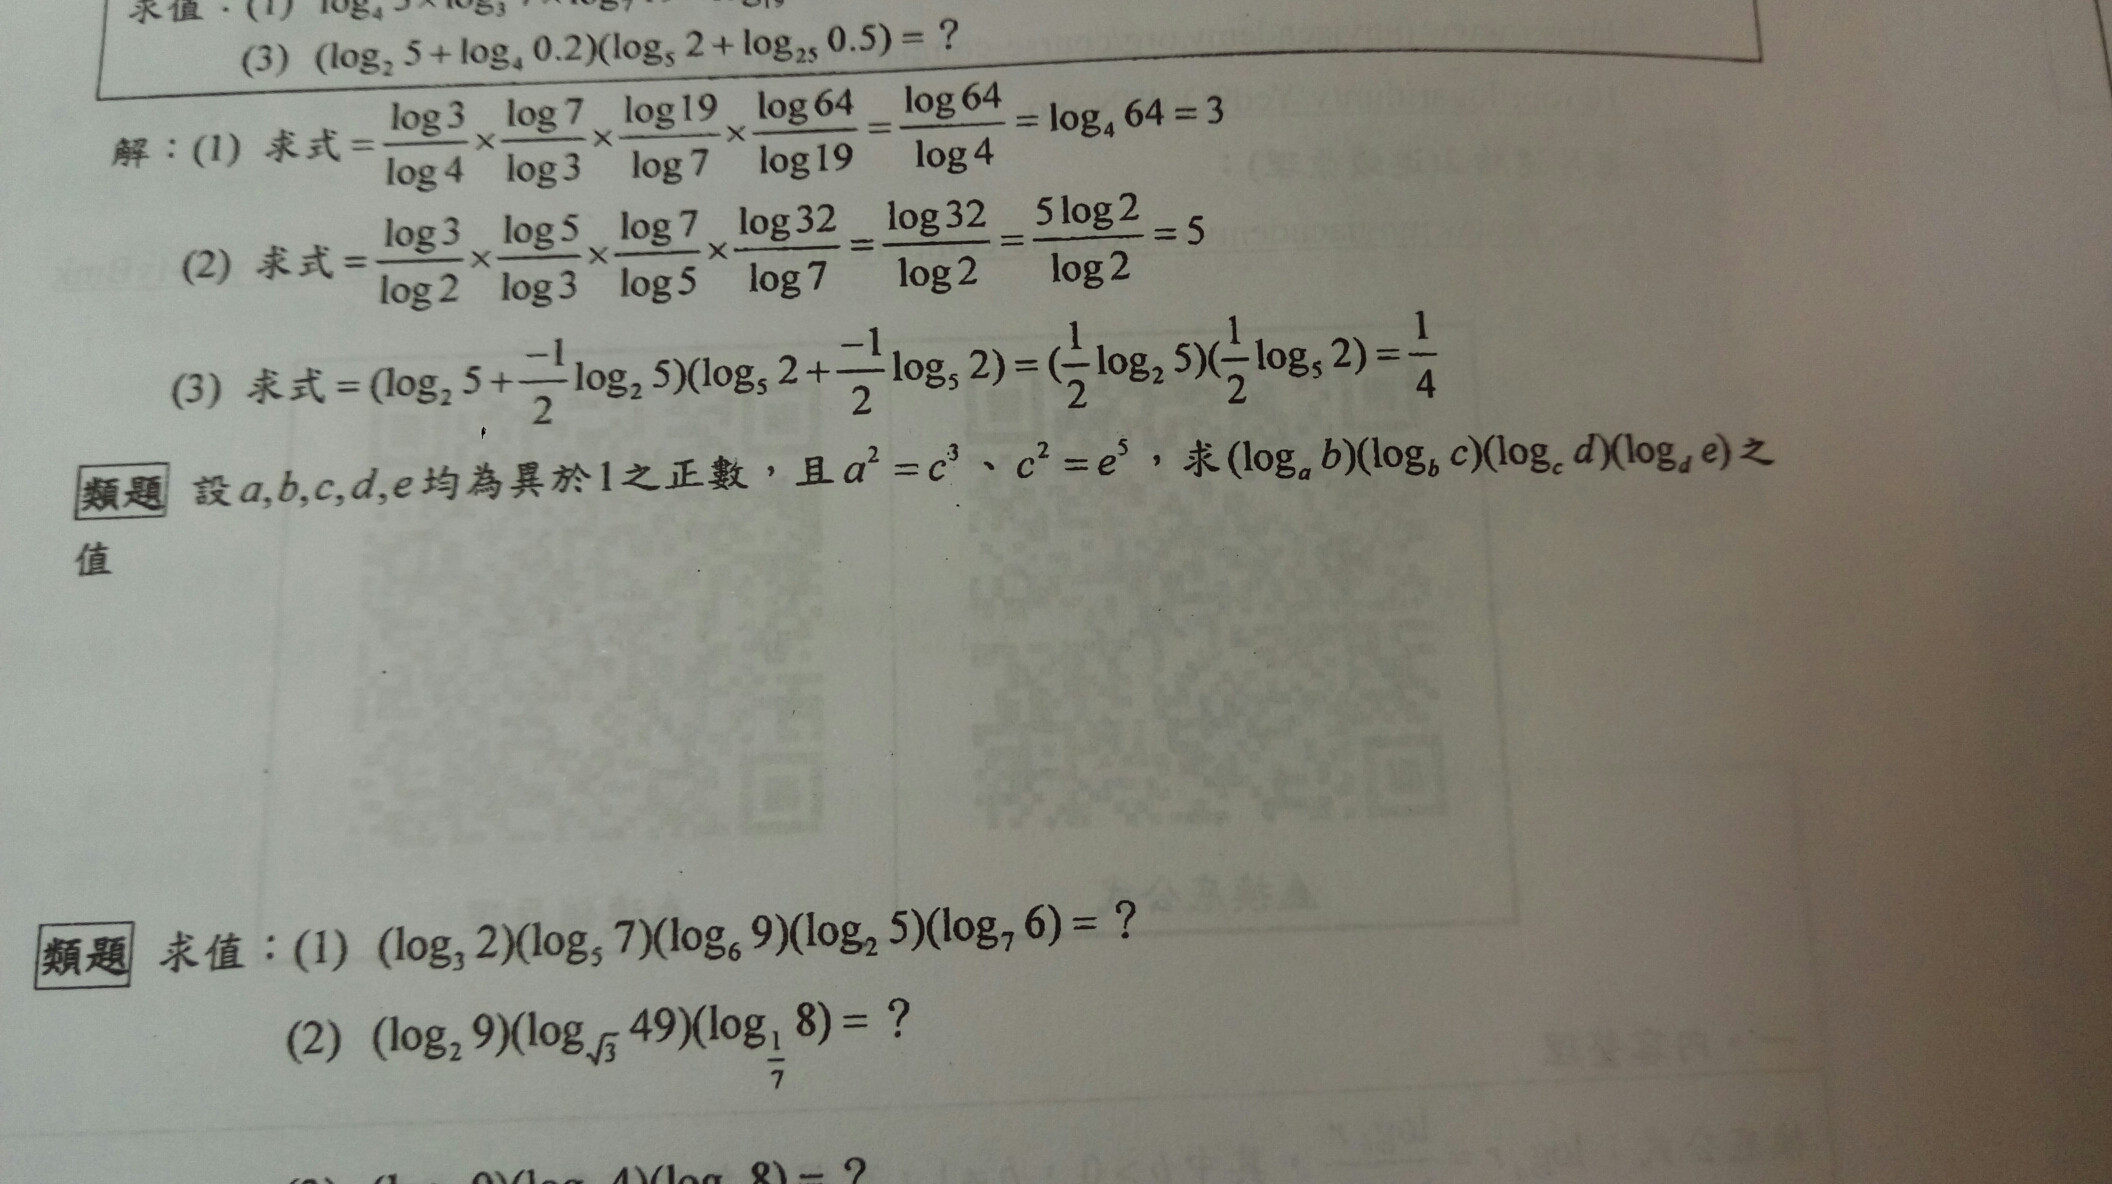 求值：(1) log₄ 3×log₃ 7×log₇
(3) (log₂ 5 + log₄ 0.2)(log₅ 2 + log₂₅ 0.5) = ?
解：(1) 求式 = log 3/log 4 × log 7/log 3 × log 19/log 7 × log 64/log 19 = log 64/log 4 = log₄ 64 = 3
(2) 求式 = log 3/log 2 × log 5/log 3 × log 7/log 5 × log 32/log 7 = log 32/log 2 = 5 log 2/log 2 = 5
(3) 求式 = (log₂ 5 + -1/2 log₂ 5)(log₅ 2 + -1/2 log₅ 2) = (1/2 log₂ 5)(1/2 log₅ 2) = 1/4
類題 設 a,b,c,d,e 均為異於1之正數，且 a² = c³、c² = e⁵，求 (logₐ b)(log_b c)(log_c d)(log_d e) 之
值
類題 求值：(1) (log₃ 2)(log₅ 7)(log₆ 9)(log₂ 5)(log₇ 6) = ?
(2) (log₂ 9)(log_√3 49)(log_1/7 8) = ?